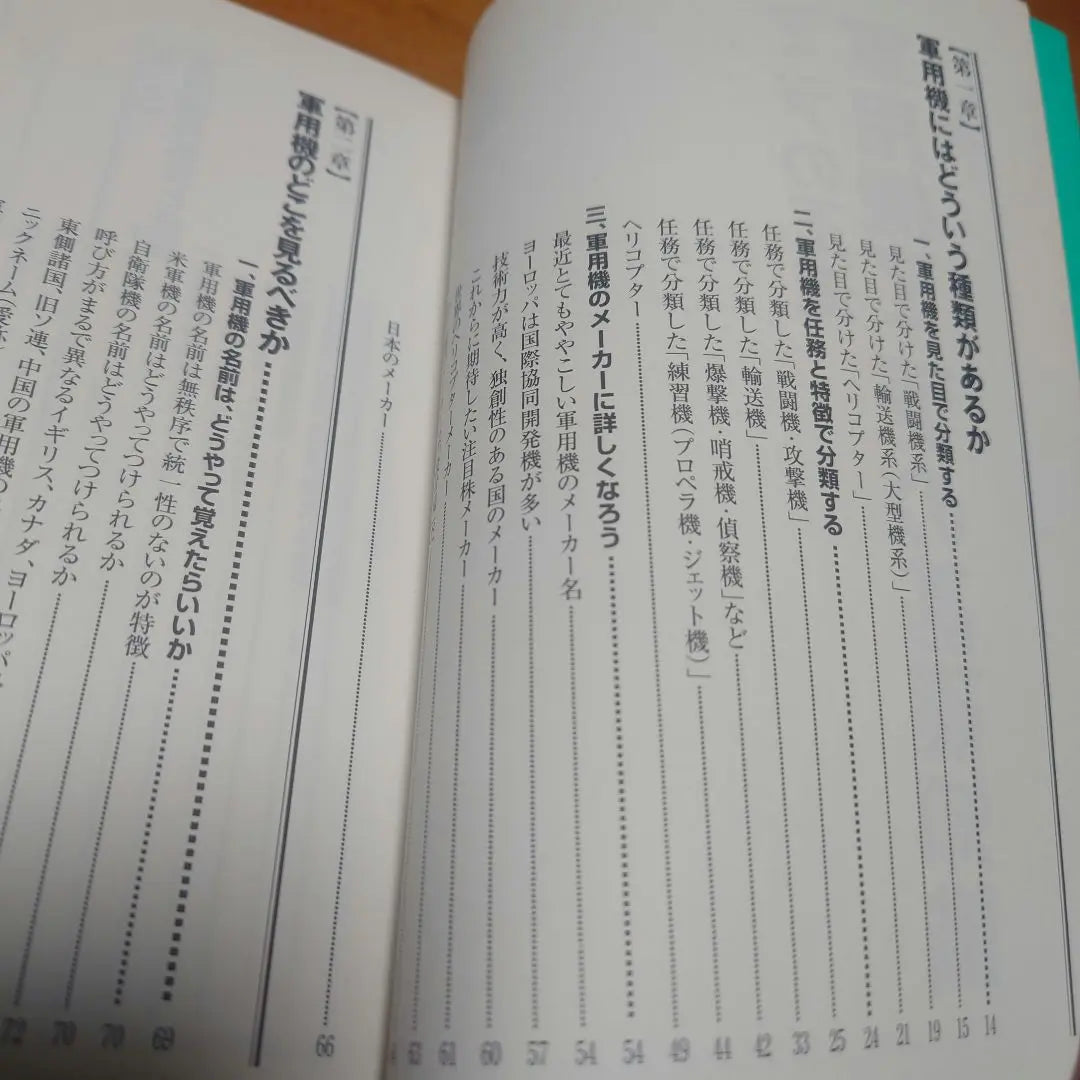 【第一章】
軍用機にはどういう種類があるか
一、軍用機を見た目で分類する 14
見た目で分けた「戦闘機系」 15
見た目で分けた「輸送機系（大型機系）」 19
見た目で分けた「ヘリコプター」 21
二、軍用機を任務と特徴で分類する 24
任務で分類した「戦闘機・攻撃機」 25
任務で分類した「輸送機」 33
任務で分類した「爆撃機・哨戒機・偵察機」など 42
任務で分類した「練習機（プロペラ機・ジェット機）」 44
ヘリコプター 49
三、軍用機のメーカーに詳しくなろう 54
最近とてもややこしい軍用機のメーカー名 54
ヨーロッパは国際協同開発機が多い 57
技術力が高く、独創性のある国のメーカー 60
これからに期待したい注目株メーカー 61
世界のヘリコプターメーカー 63
日本のメーカー 66
【第二章】
軍用機のどこを見るべきか
一、軍用機の名前は、どうやって覚えたらいいか 69
軍用機の名前は無秩序で統一性のないのが特徴 70
米軍機の名前はどうやってつけられるか 70
自衛隊機の名前はどうやってつけられるか 72
呼び方がまるで異なるイギリス、カナダ、ヨーロッパ
東側諸国、旧ソ連、中国の軍用機の
ニックネーム（愛称